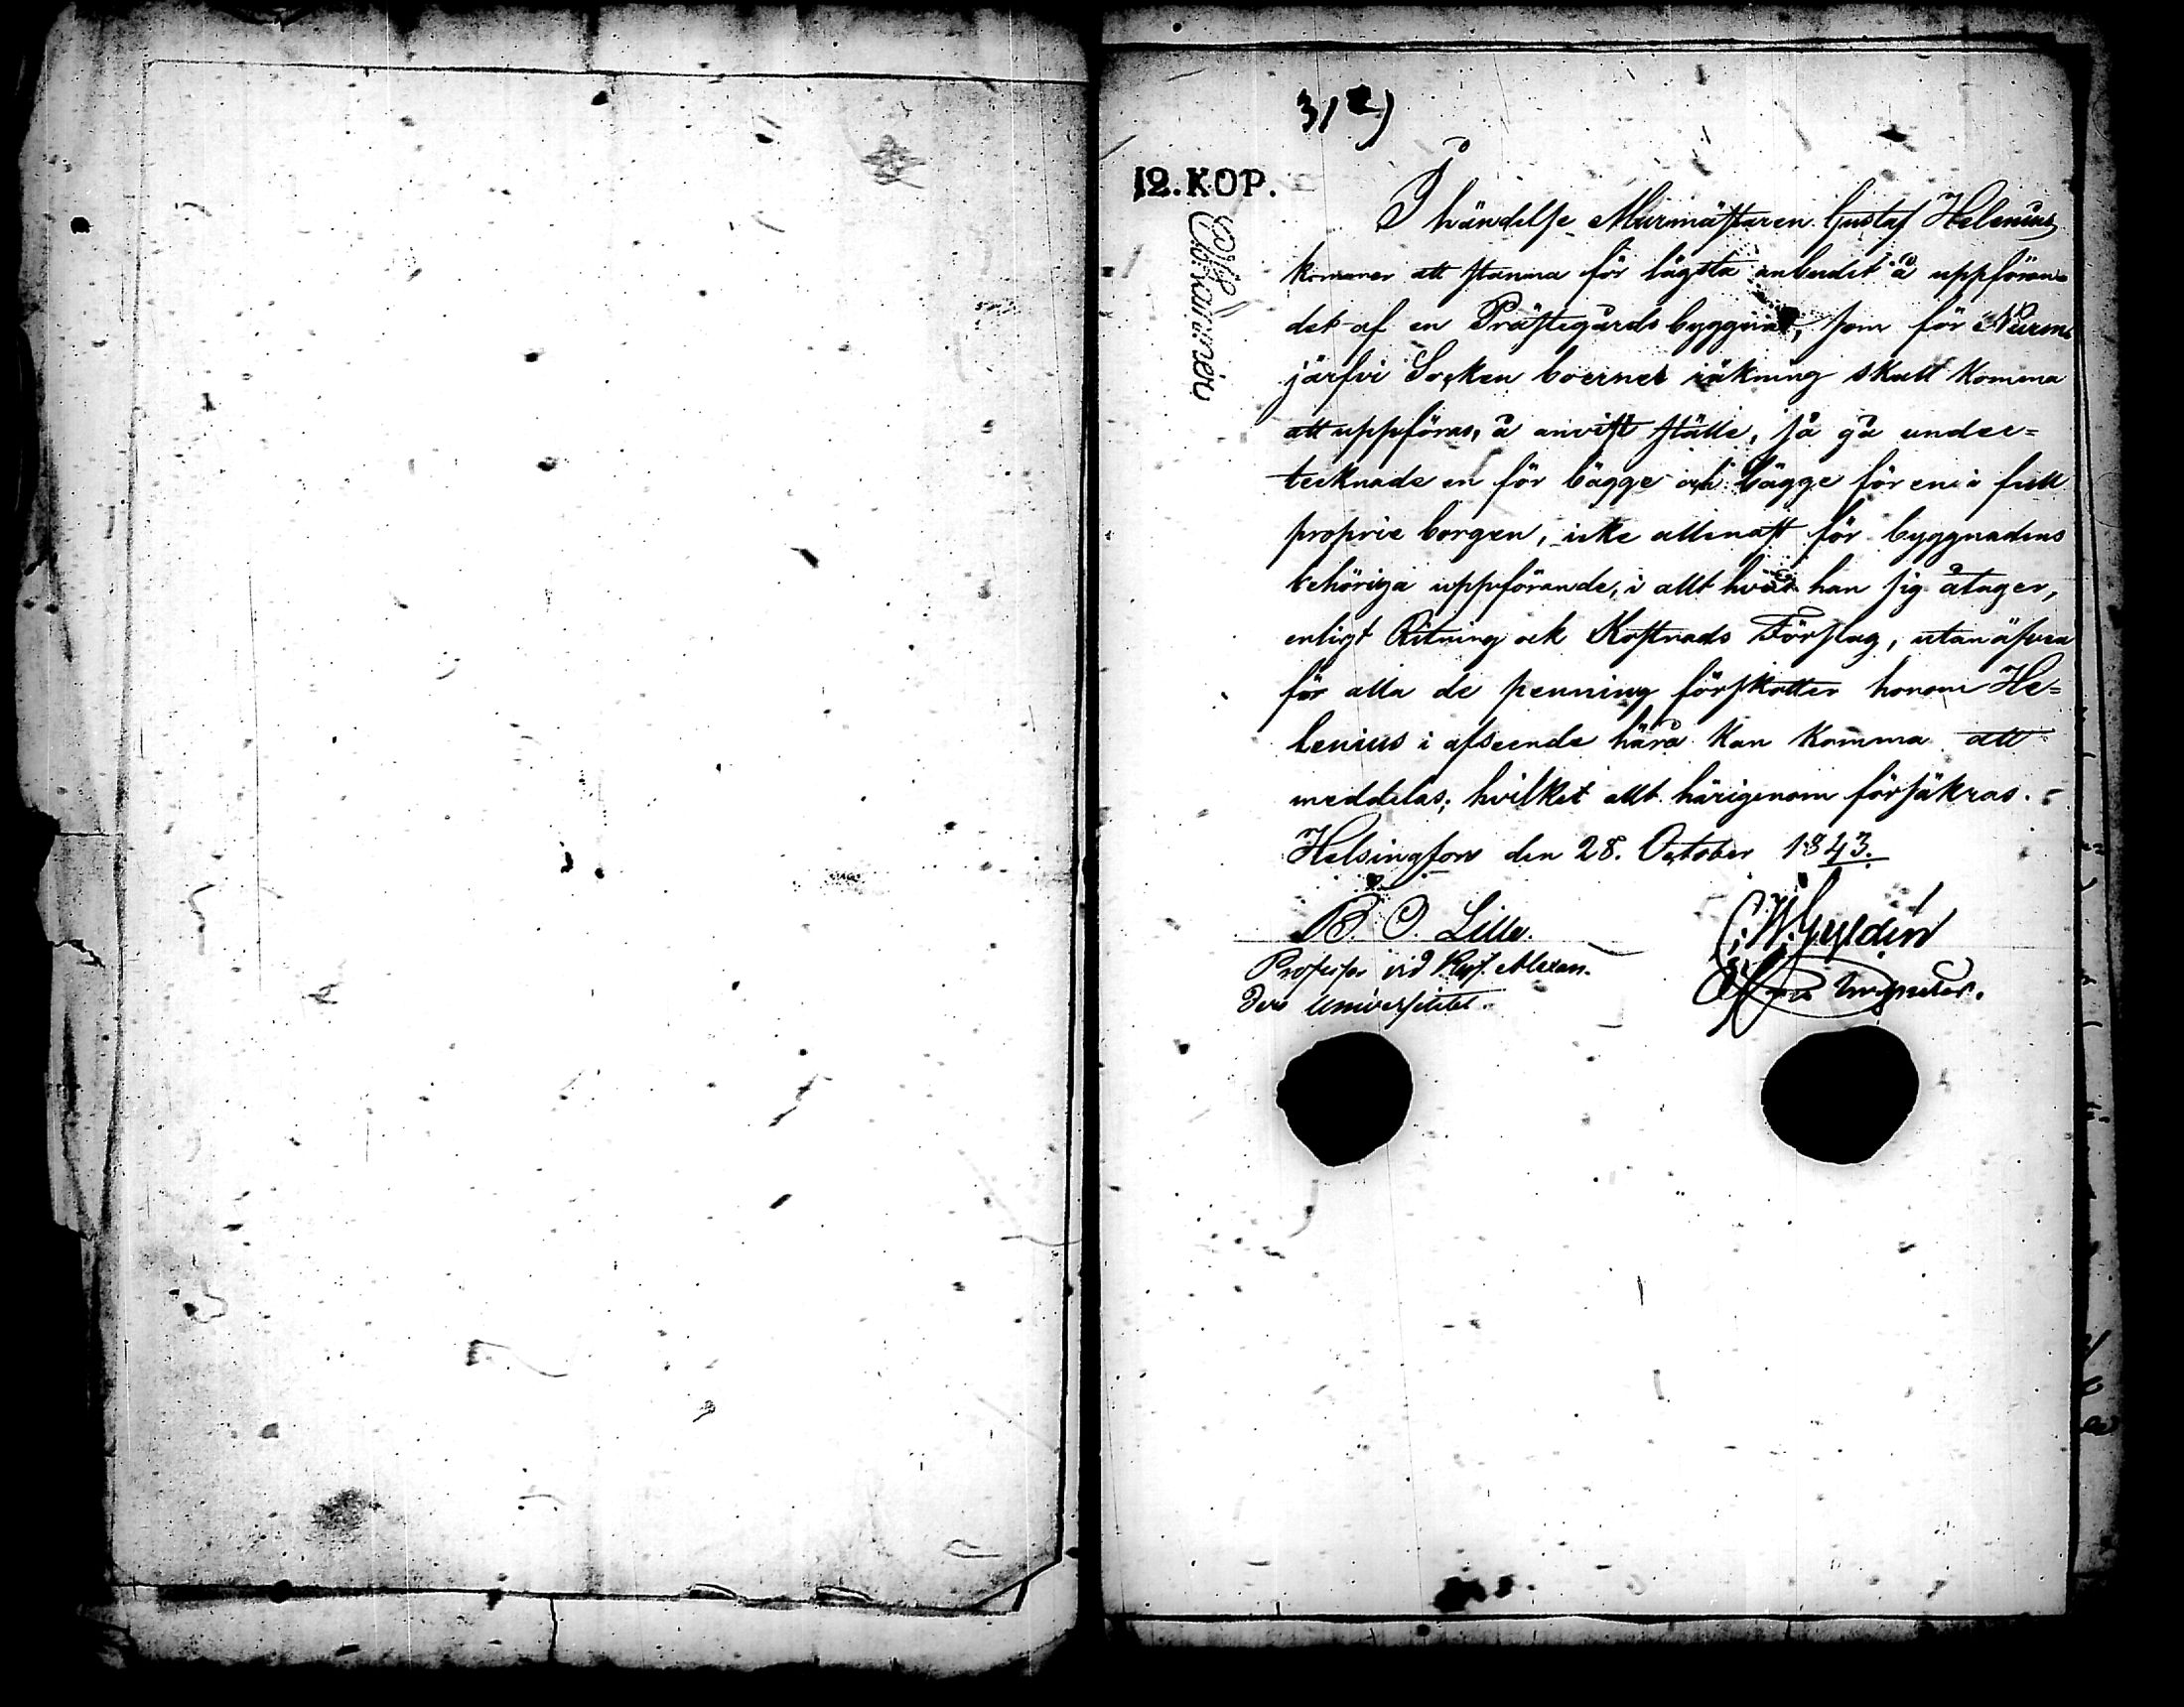 31
12. KOP.
I händelse Murmästaren Gustaf Helenius
kommer att stanna för lägsta anbudet å uppföran-
det af en Prästegårds byggnad, som för Nurm
järfvi Socken boernes räkning skall komma
att uppföras, å anvist ställe, så gå under=
tecknade en för bägge och bägge för en i full
proprie borgen, icke allenast för byggnadens
behöriga uppförande, i allt hvad han sig åtager,
enligt Ritning och Kostnads Förslag, utan äfven
för alla de penning förskotter honom He=
lenius i afseende härå kan komma att
meddelas; hvilket allt härigenom försäkras.
Helsingfors den 28. October 1843.
B. O. Lille.
Professor vid Kejs. Alexan-
ders Universitetet.
C. W. Gyldén